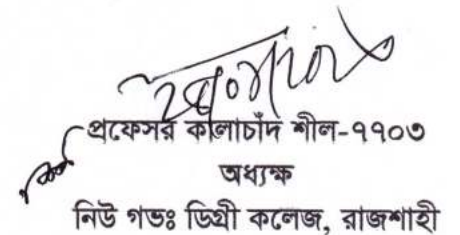 প্রফেসর কালাচাঁদ শীল-৭৭০৩
অধ্যক্ষ
নিউ গভঃ ডিগ্রী কলেজ, রাজশাহী